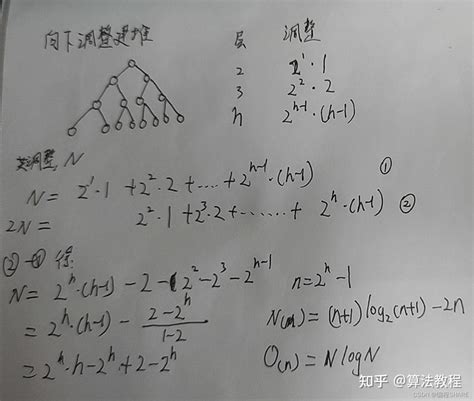 向下调整建堆 层 调整
2 2¹·1
3 2²·2
h 2^(h-1)·(h-1)
共调整 N
N = 2¹·1 + 2²·2 + ---- + 2^(h-1)·(h-1) ①
2N = 2²·1 + 2³·2 + ------ + 2^h·(h-1) ②
② - ① 得:
N = 2^h·(h-1) - 2 - 2² - 2³ - 2^(h-1) n = 2^h - 1
= 2^h·(h-1) - (2-2^h)/(1-2) N(n) = (n+1) log₂(n+1) - 2n
= 2^h·h - 2^h + 2 - 2^h O(n) = N log N
知乎 @算法教程
CSDN @编程SHARE